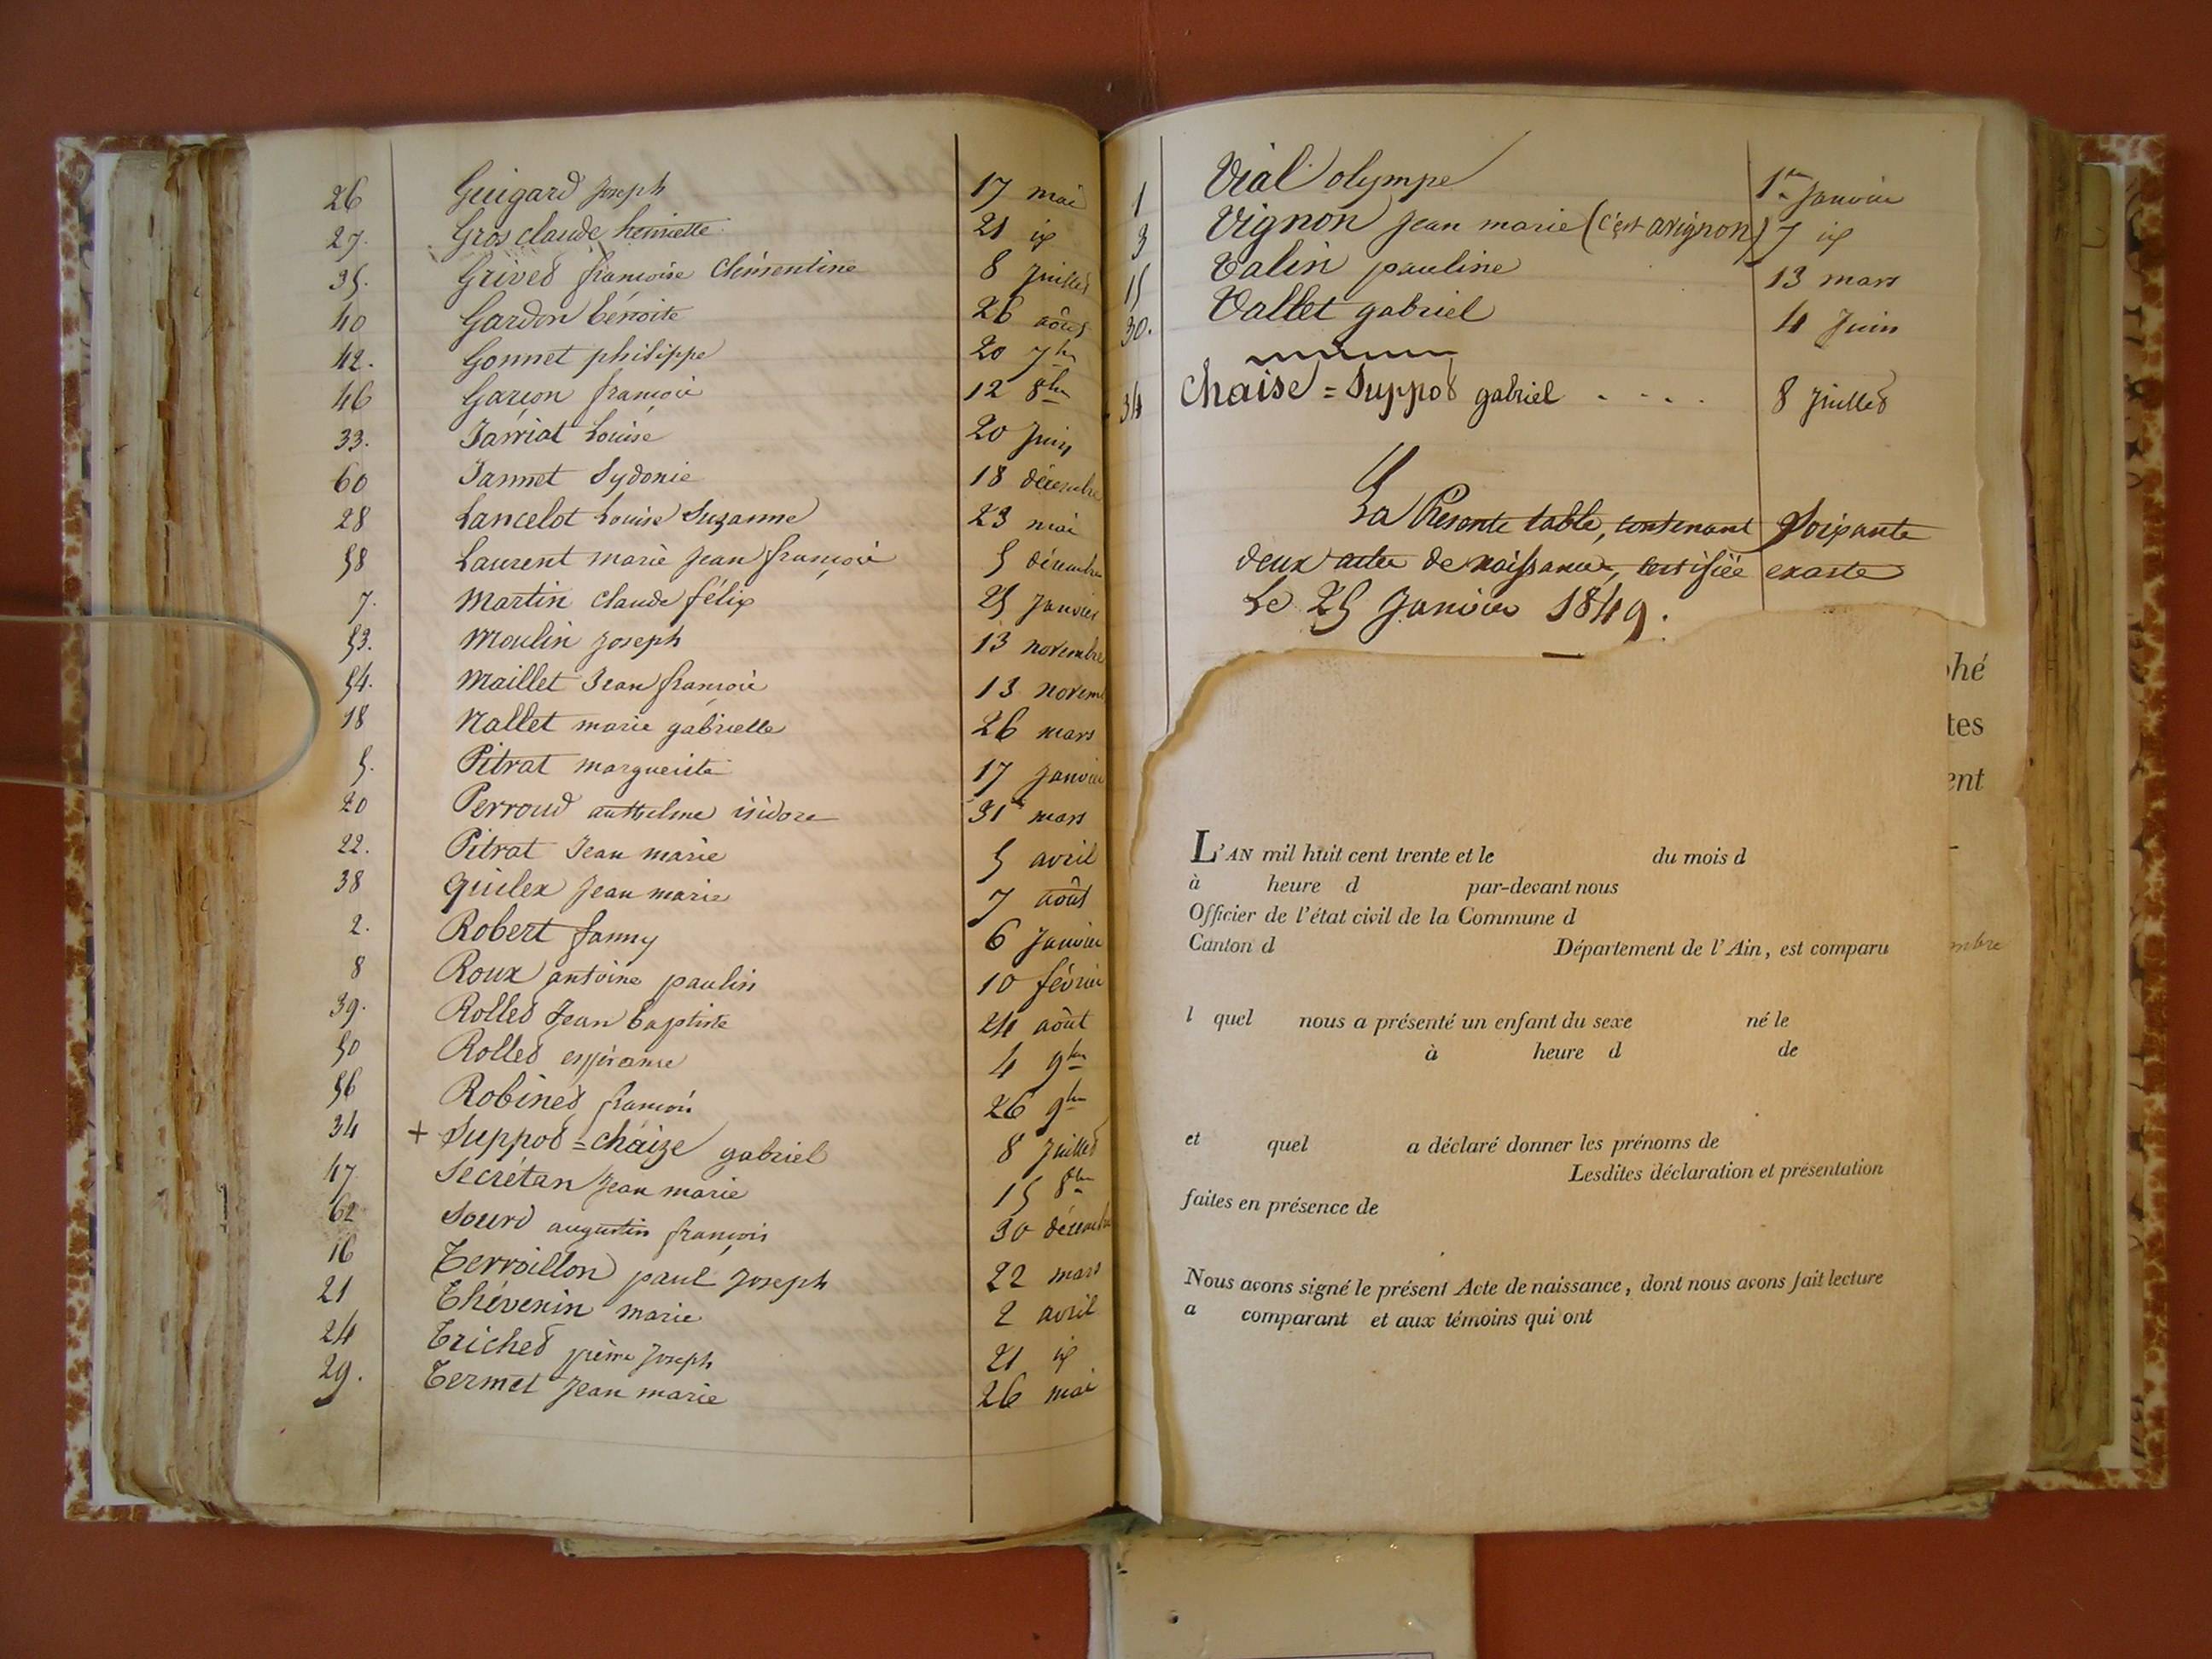 26 Guigard Joseph 17 mai
27. Gros claude henriette 21 id
35. Grivet françoise Clémentine 8 Juillet
40 Gardon bénoite 26 aôut
42. Gonnet philippe 20 7bre
46 Garçon françois 12 8bre
33. Jarriat Louise 20 Juin
60 Jannet Sydonie 18 décembre
28 Lancelot Louise Suzanne 23 mai
58 Laurent marie Jean françois 5 décembre
7. Martin claude félix 25 Janvier
53. Moulin Joseph 13 novembre
54. Maillet Jean françois 13 novem
18 Nallet marie gabrielle 26 mars
5. Pitrat marguerite 17 Janvier
20 Perroud anthelme isidore 31 mars
22. Pitrat Jean marie 5 avril
38 Quilex Jean marie 7 août
2. Robert fanny 6 Janvier
8 Roux antoine paulin 10 février
39. Rollet Jean baptiste 24 août
50 Rollet espérance 4 9bre
56 Robinet françois 26 9bre
34 + Suppot = chaize gabriel 8 Juillet
47 Secrétan Jean marie 15 8bre
62 Sourd augustin françois 30 décembre
16 Terraillon paul Joseph 22 mars
21 Thévenin marie 2 avril
24 Trichet pierre Joseph 21 id
29. Termet Jean marie 26 mai
1 Vial olympe 1er Janvier
3 Vignon Jean marie (c'est avignon) 7 id
15 Valin pauline 13 mars
30. Vallet gabriel 4 Juin
34 Chaise = Suppot gabriel . . . . 8 Juillet
La Présente table, contenant Soixante
deux actes de naissance, certifiée exacte
Le 25 Janvier 1849.
phé
tes
ent
L'AN mil huit cent trente et le du mois d
à heure d par-devant nous
Officier de l'état civil de la Commune d
Canton d Département de l'Ain, est comparu
mbre
l quel nous a présenté un enfant du sexe né le
à heure d de
et quel a déclaré donner les prénoms de
Lesdites déclaration et présentation
faites en présence de
Nous avons signé le présent Acte de naissance, dont nous avons fait lecture
a comparant et aux témoins qui ont